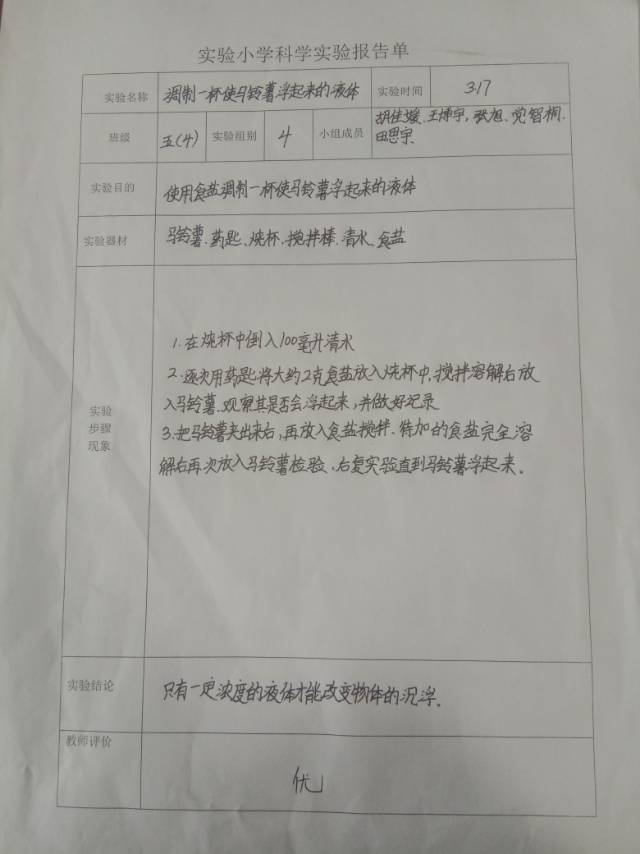 实验小学科学实验报告单
实验名称 调制一杯使马铃薯浮起来的液体 实验时间 3.17
班级 五(4) 实验组别 4 小组成员 胡佳媛、王博宇,张旭、党智桐、
田思宇
实验目的 使用食盐调制一杯使马铃薯浮起来的液体
实验器材 马铃薯、药匙、烧杯、搅拌棒、清水、食盐
实验
步骤
现象
1.在烧杯中倒入100毫升清水
2.逐次用药匙将大约2克食盐放入烧杯中,搅拌溶解后放
入马铃薯、观察其是否会浮起来,并做好记录
3.把马铃薯夹出来后,再放入食盐搅拌、待加的食盐完全溶
解后再次放入马铃薯检验、后复实验直到马铃薯浮起来。
实验结论 只有一定浓度的液体才能改变物体的沉浮。
教师评价
优